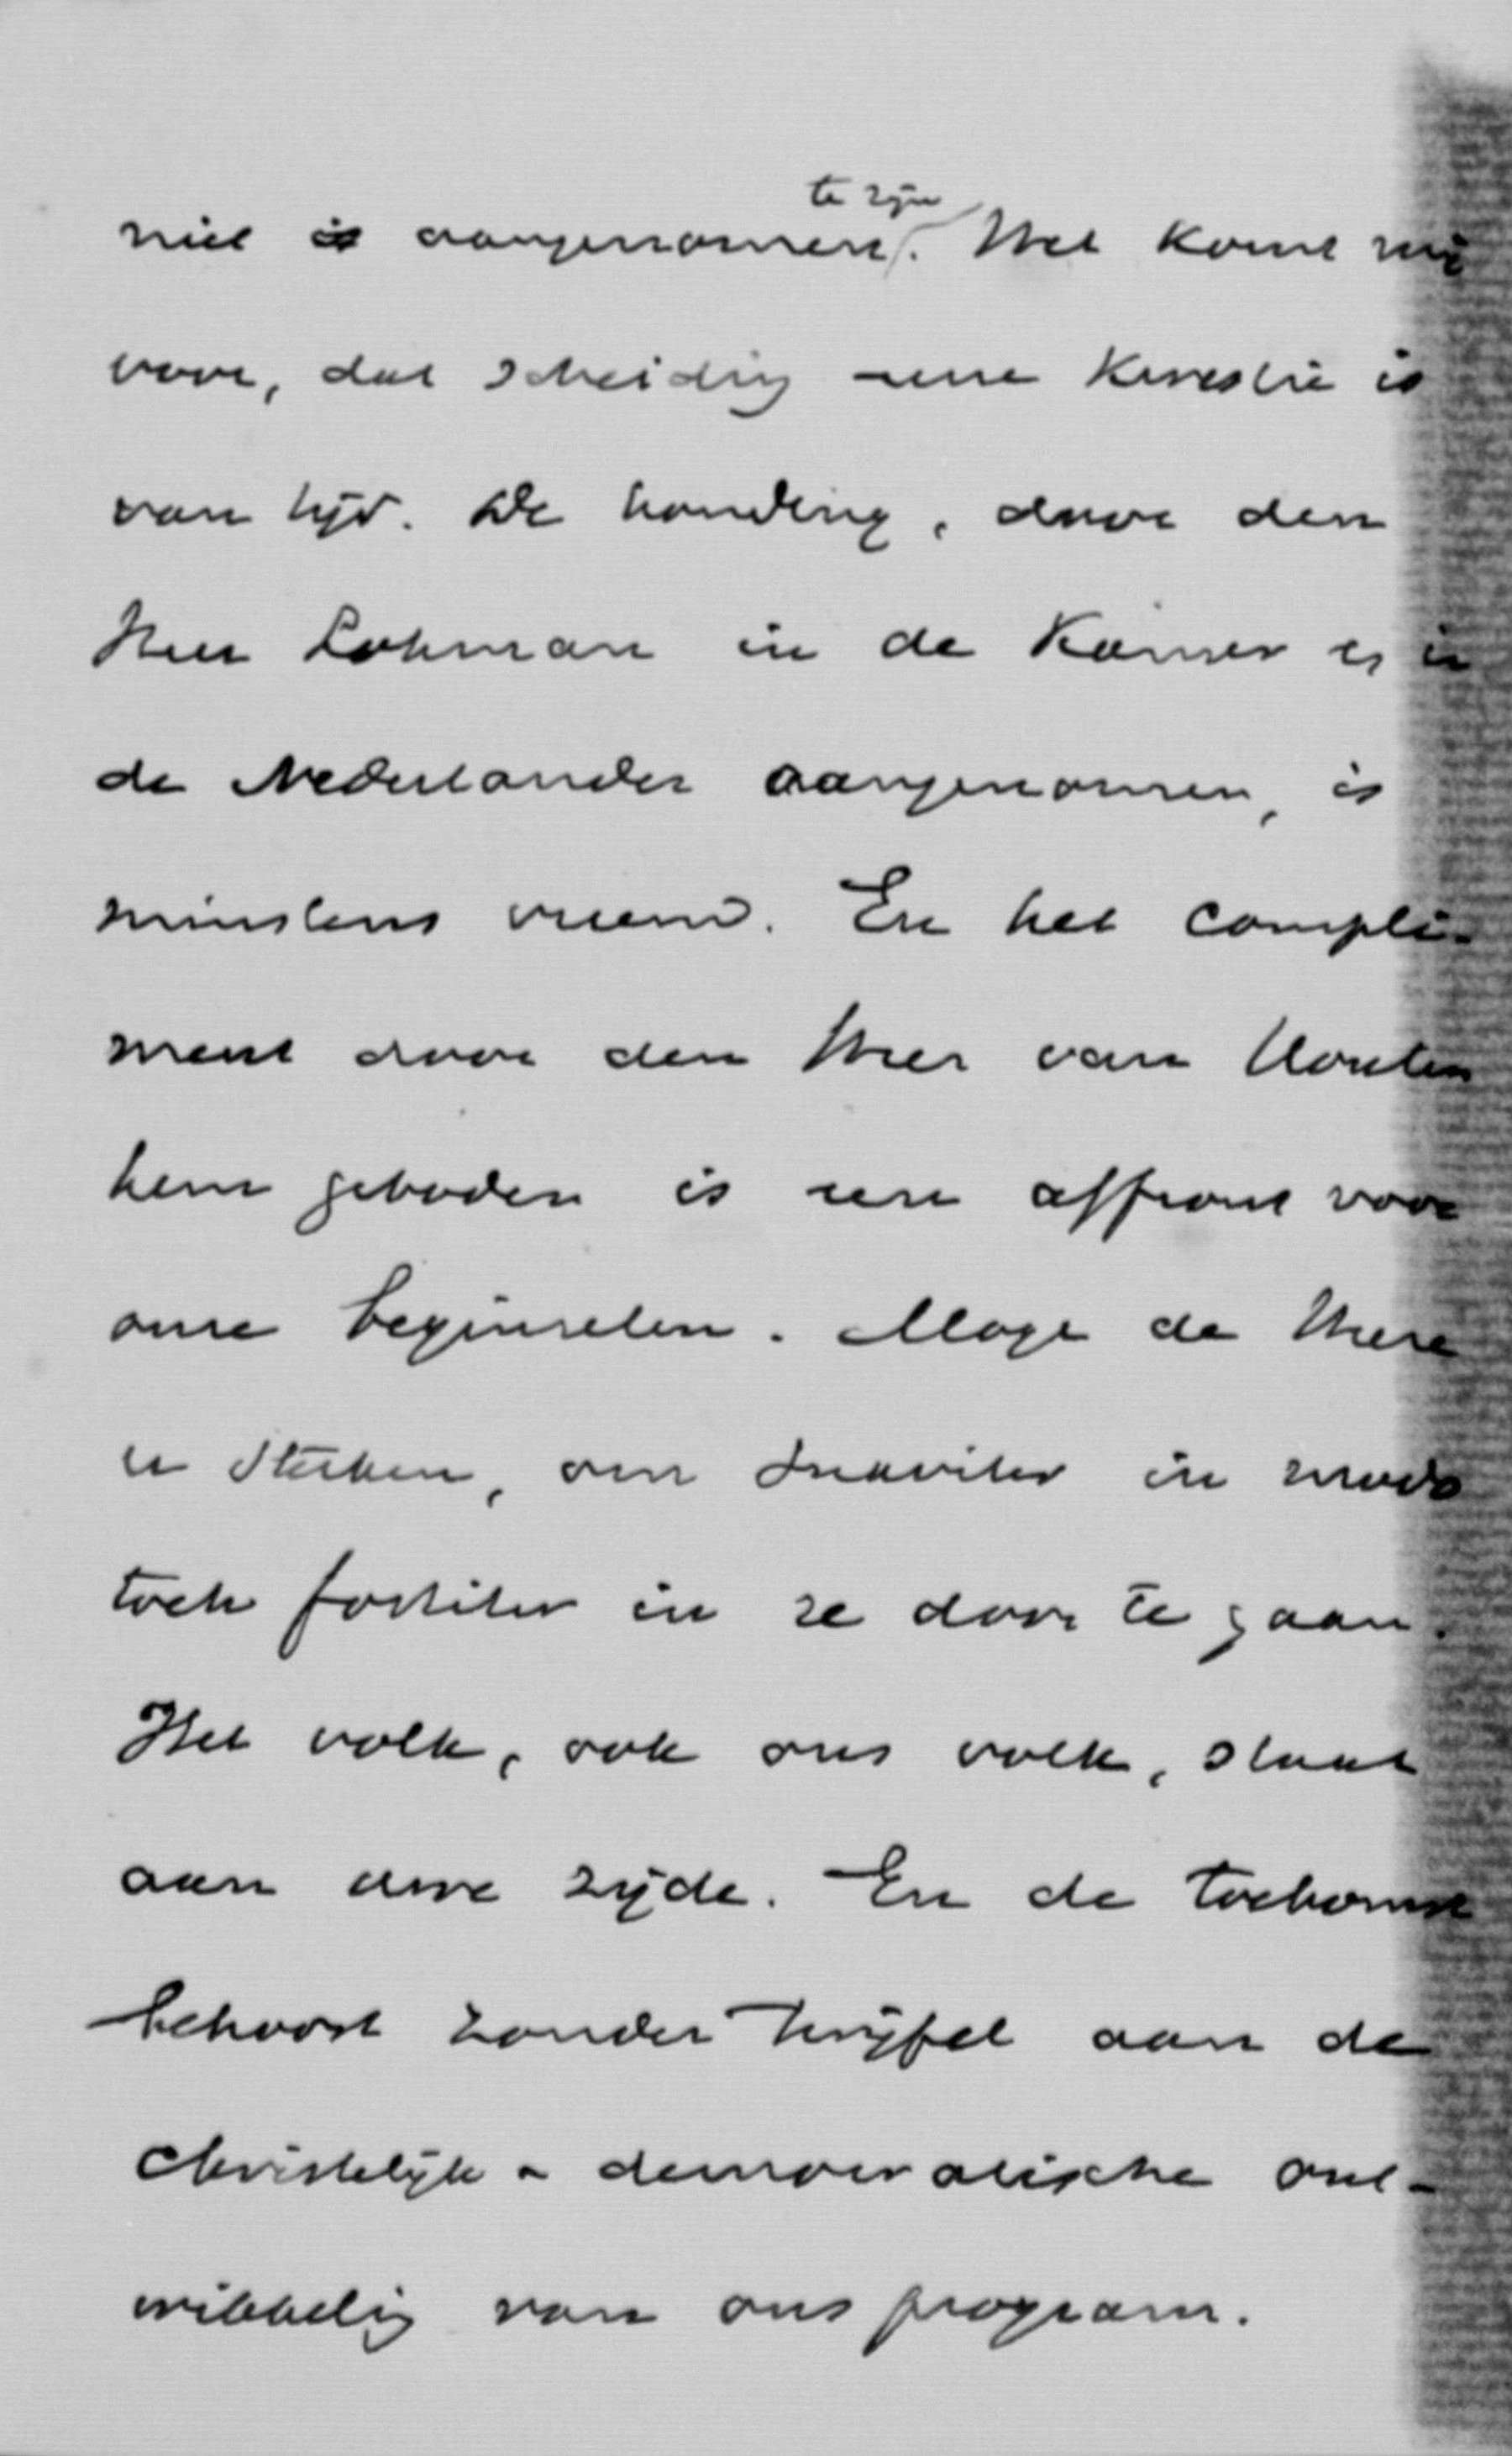 te zijn
niet is aangenomen. Het komt mij
voor, dat scheiding eene kwestie is
van tijd. De houding, door den
Heer Lohman in de Kamer en in
de Nederlander aangenomen, is
minstens vreemd. En het compli-
ment door den Heer van Houten
hem geboden is een affront voor
onze beginselen. Moge de Heere
u sterken, om suaviter in modo
toch fortiter in re door te gaan.
Het volk, ook ons volk, staat
aan uwe zijde. En de toekomst
behoort zonder twijfel aan de
Christelijk-democratische ont-
wikkeling van ons program.